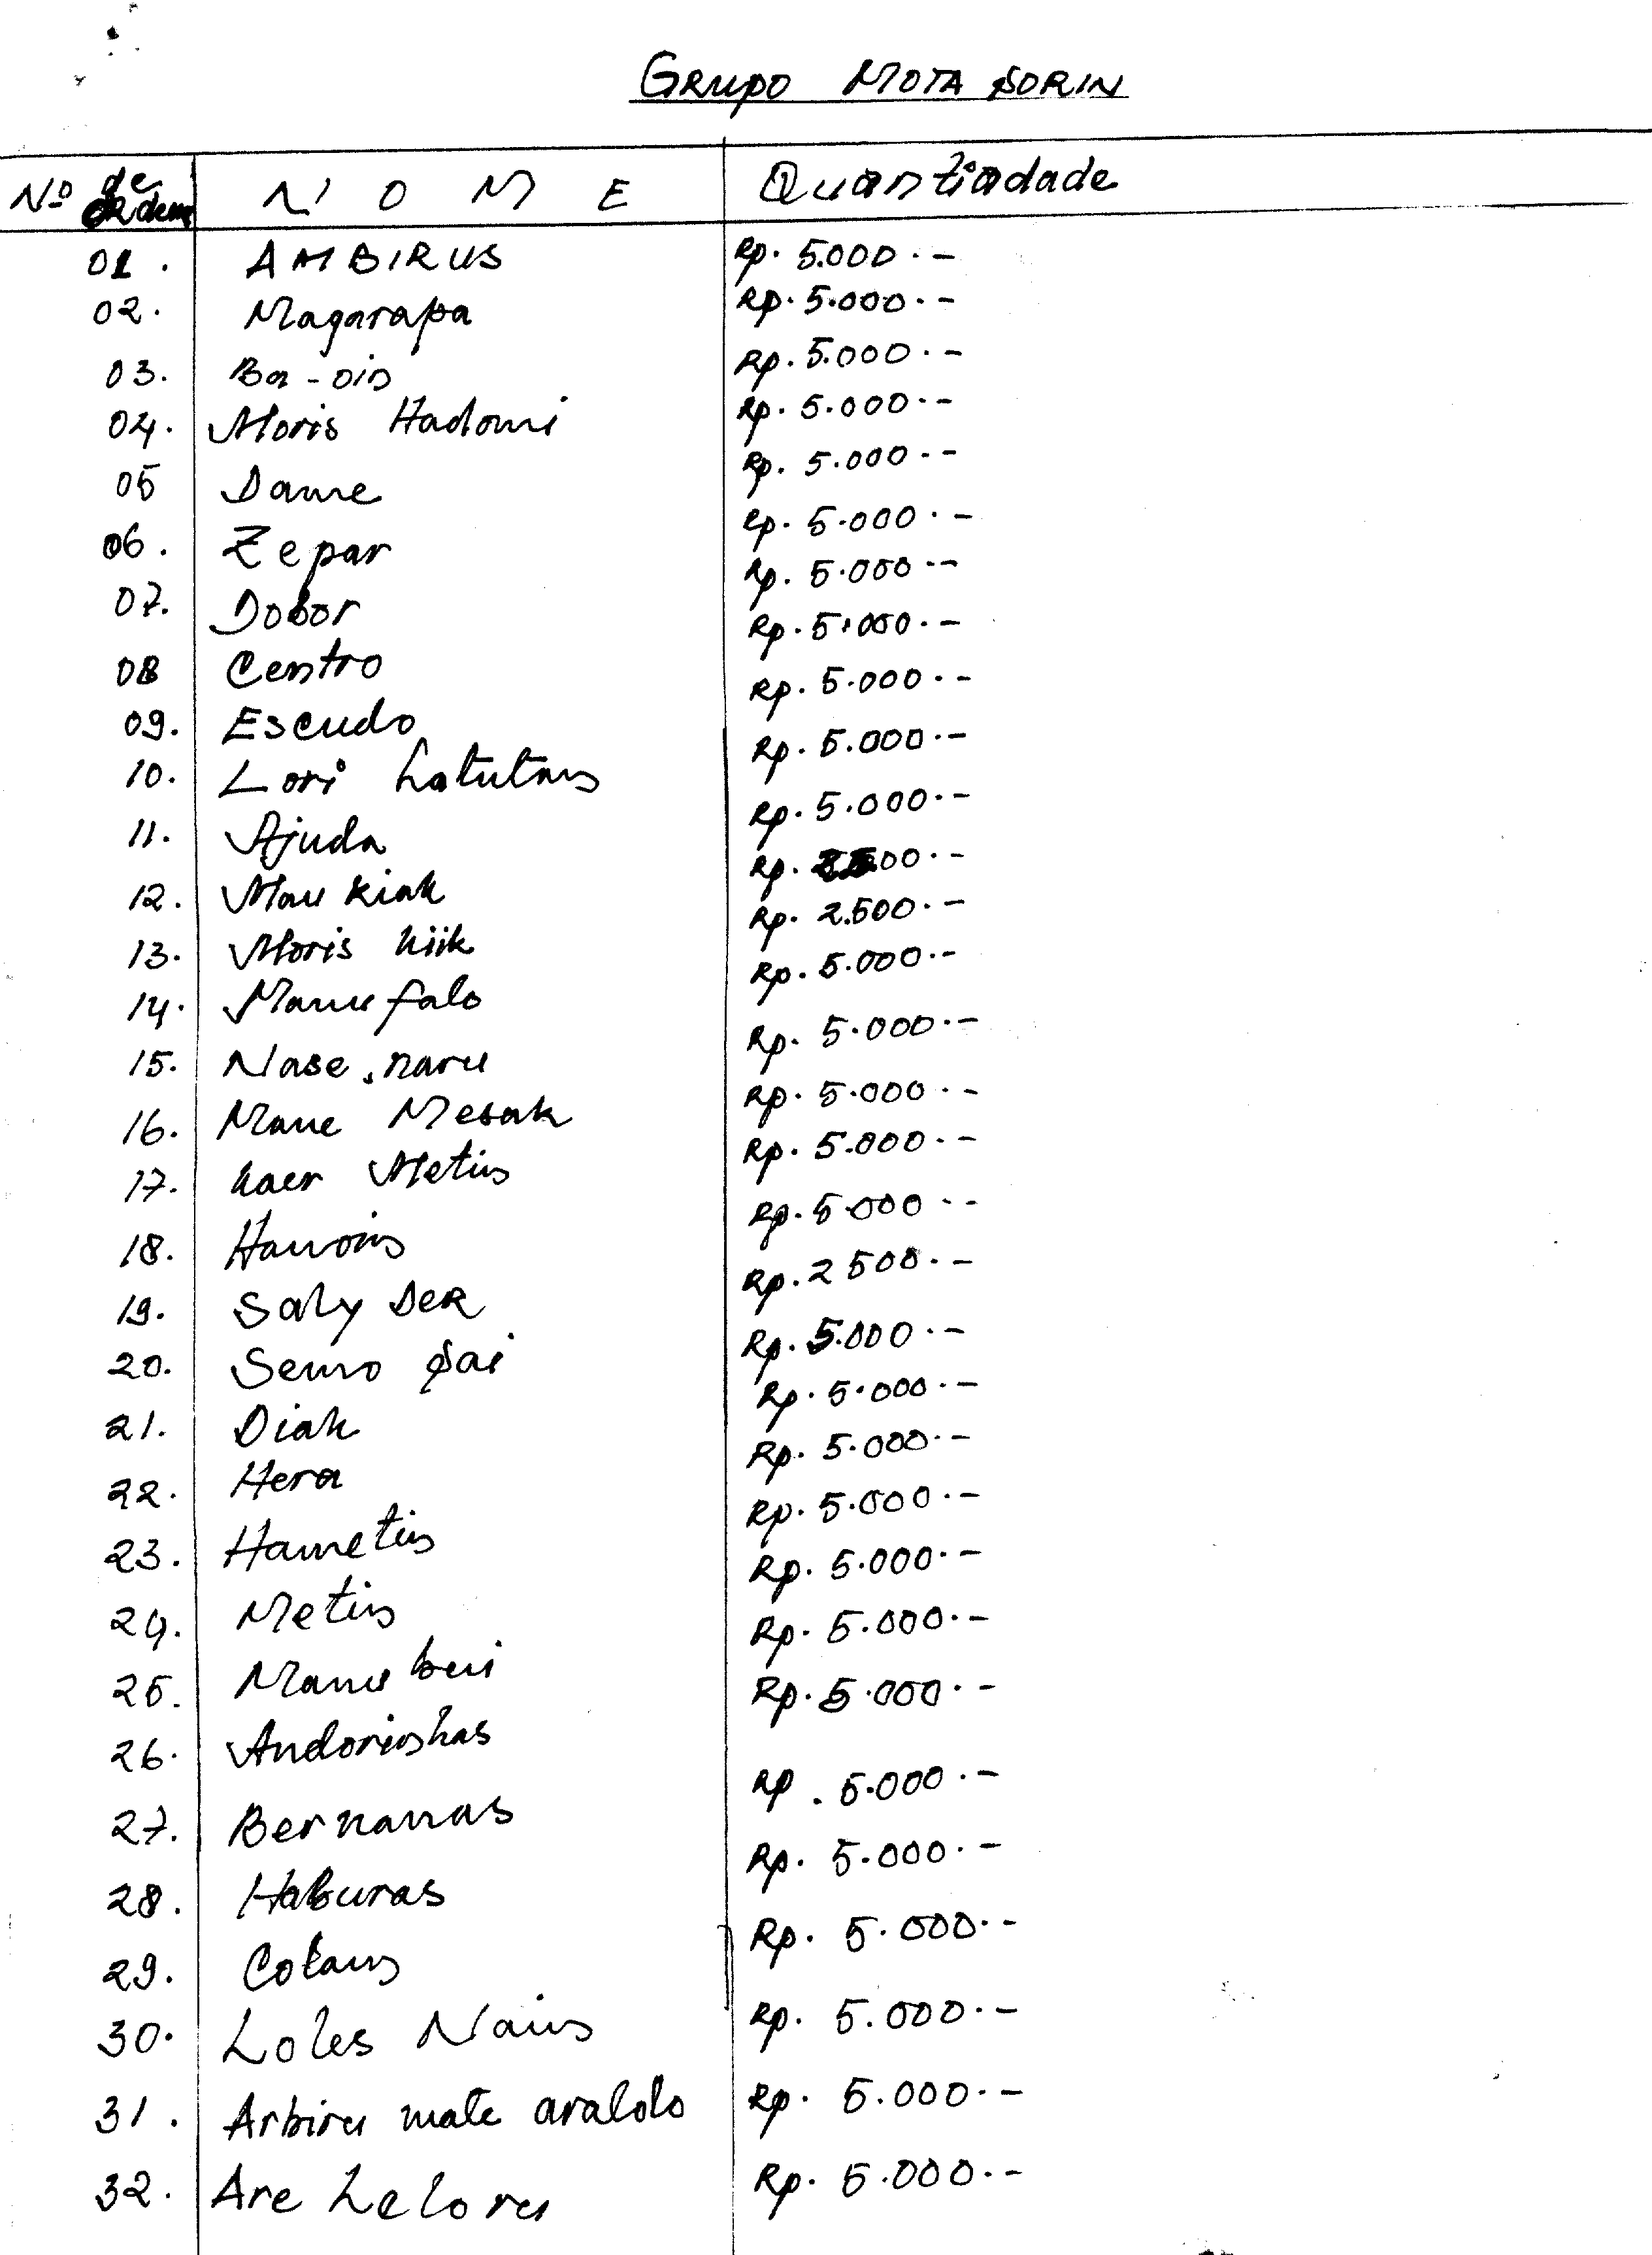 GRUPO MOTA SORIN
Nº de ordem N O M E Quantidade
01. AMBIRUS Rp. 5.000.-
02. Magarapa Rp. 5.000.-
03. Ba-oin Rp. 5.000.-
04. Moris Hadomi Rp. 5.000.-
05 Dame Rp. 5.000.-
06. Zepar Rp. 5.000.-
07. Dobor Rp. 5.000.-
08 Centro Rp. 5.000.-
09. Escudo Rp. 5.000.-
10. Lori Latutan Rp. 5.000.-
11. Ajuda Rp. 5.000.-
12. Mau Kiak Rp. 2.500.-
13. Moris kiik Rp. 2.500.-
14. Manufalo Rp. 5.000.-
15. Nase naru Rp. 5.000.-
16. Mane Mesak Rp. 5.000.-
17. kaer Metin Rp. 5.000.-
18. Rp. 5.000.-
19. Saly DER Rp. 2500.-
20. Semo Sai Rp. 5.000.-
21. Diak Rp. 5.000.-
22. Hera Rp. 5.000.-
23. Hametin Rp. 5.000.-
24. Metin Rp. 5.000.-
25. Manu bui Rp. 5.000.-
26. Andorinhas Rp. 5.000.-
27. Rp. 5.000.-
28. Haburas Rp. 5.000.-
29. Rp. 5.000.-
30. Loles Nain Rp. 5.000.-
31. Arbiru mate aralolo Rp. 5.000.-
32. Are Leloru Rp. 5.000.-